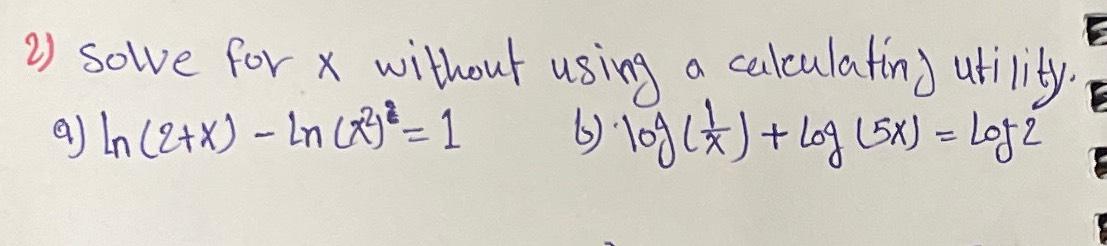 2) Solve for x without using a calculating utility.
a) ln (2+x) - ln (x²)² = 1 b) log (1/x) + log (5x) = log 2